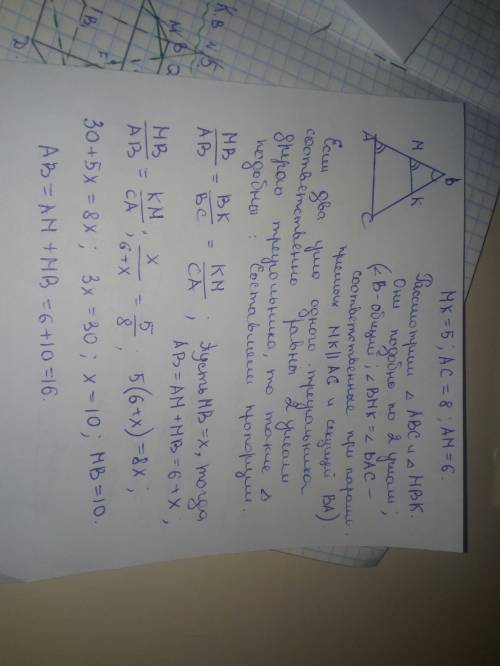 MK=5; AC=8; AM=6.
Рассмотрим △ABC и △MBK.
Они подобны по 2 углам;
(∠B-общий; ∠BMK=∠BAC-
соответственные при паралл.
прямых MK||AC и секущей BA)
Если два угла одного треугольника
соответственно равны 2 углам
другого треугольника, то такие △
подобны. Составляем пропорции.
MB/AB = BK/BC = KM/CA; Пусть MB=x, тогда
AB=AM+MB=6+x;
MB/AB = KM/CA; x/6+x = 5/8; 5(6+x)=8x;
30+5x=8x; 3x=30; x=10; MB=10.
AB=AM+MB=6+10=16.
B
M
K
A
C
K
B
М
В